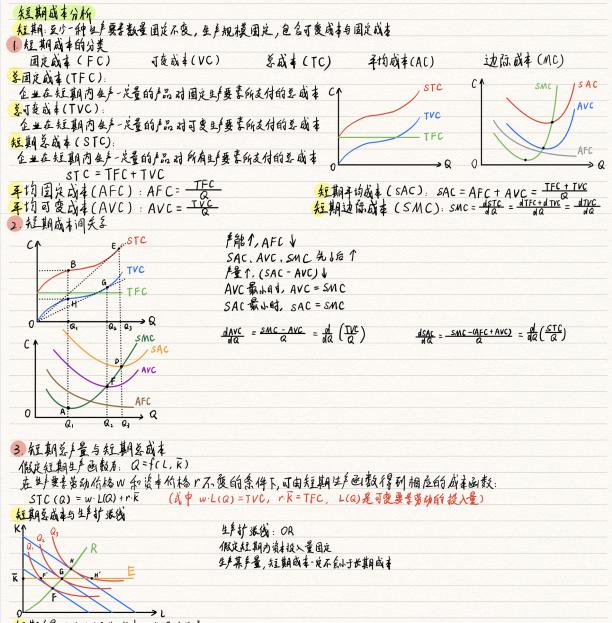 短期成本分析
短期:至少一种生产要素数量固定不变,生产规模固定,包含可变成本与固定成本
1. 短期成本的分类
固定成本(FC) 可变成本(VC) 总成本(TC) 平均成本(AC) 边际成本(MC)
总固定成本(TFC):
企业在短期内生产一定量的产品对固定生产要素所支付的总成本
总可变成本(TVC):
企业在短期内生产一定量的产品对可变生产要素所支付的总成本
短期总成本(STC):
企业在短期内生产一定量的产品对所有生产要素所支付的总成本
STC = TFC + TVC
C STC TVC TFC O Q
C SMC SAC AVC AFC O Q
平均固定成本(AFC): AFC = TFC/Q
短期平均成本(SAC): SAC = AFC + AVC = TFC + TVC/Q
平均可变成本(AVC): AVC = TVC/Q
短期边际成本(SMC): SMC = dSTC/dQ = dTFC+dTVC/dQ = dTVC/dQ
2. 短期成本间关系
C STC E B TVC G TFC H O Q₁ Q₂ Q₃ Q
产能↑, AFC↓
SAC, AVC, SMC 先↓后↑
产量↑, (SAC-AVC)↓
AVC最小时, AVC = SMC
SAC最小时, SAC = SMC
dAVC/dQ = SMC-AVC/Q = d/dQ (TVC/Q) dSAC/dQ = SMC-(AFC+AVC)/Q = d/dQ (STC/Q)
C SMC SAC D AVC F AFC A O Q₁ Q₂ Q₃ Q
3. 短期总产量与短期总成本
假定短期生产函数为: Q=f(L, k̄)
在生产要素劳动价格w和资本价格r不变的条件下,可由短期生产函数得到相应的成本函数:
STC(Q) = w·L(Q)+r·k̄ (式中 w·L(Q)=TVC, r·k̄=TFC, L(Q)是可变要素劳动的投入量)
短期总成本与生产扩张线
K Q₁ Q₂ Q₃ R E K̄ G H H' F F' O L
生产扩张线: OR
假定短期内资本投入量固定
生产某产量,短期成本一定不会小于长期成本